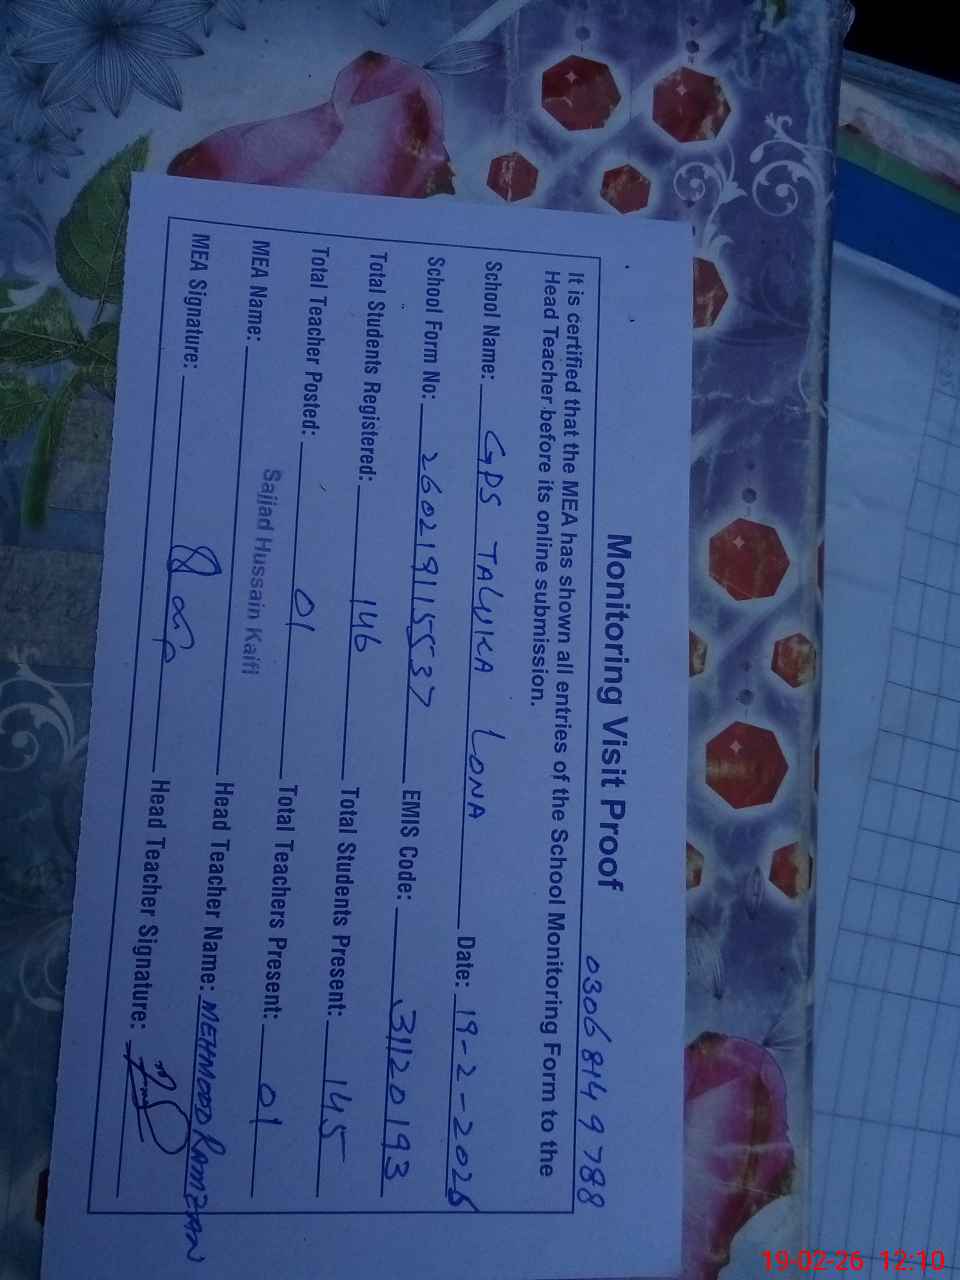 Monitoring Visit Proof
0306 8149788
It is certified that the MEA has shown all entries of the School Monitoring Form to the
Head Teacher before its online submission.
School Name: GPS TALUKA LONA Date: 19-2-2026
School Form No: 26021915537 EMIS Code: 31120193
Total Students Registered: 146 Total Students Present: 145
Total Teacher Posted: 01 Total Teachers Present: 01
MEA Name: Sajjad Hussain Kaifi Head Teacher Name: MEHMOOD RAMZAN
MEA Signature: Head Teacher Signature:
19-02-26 12:10